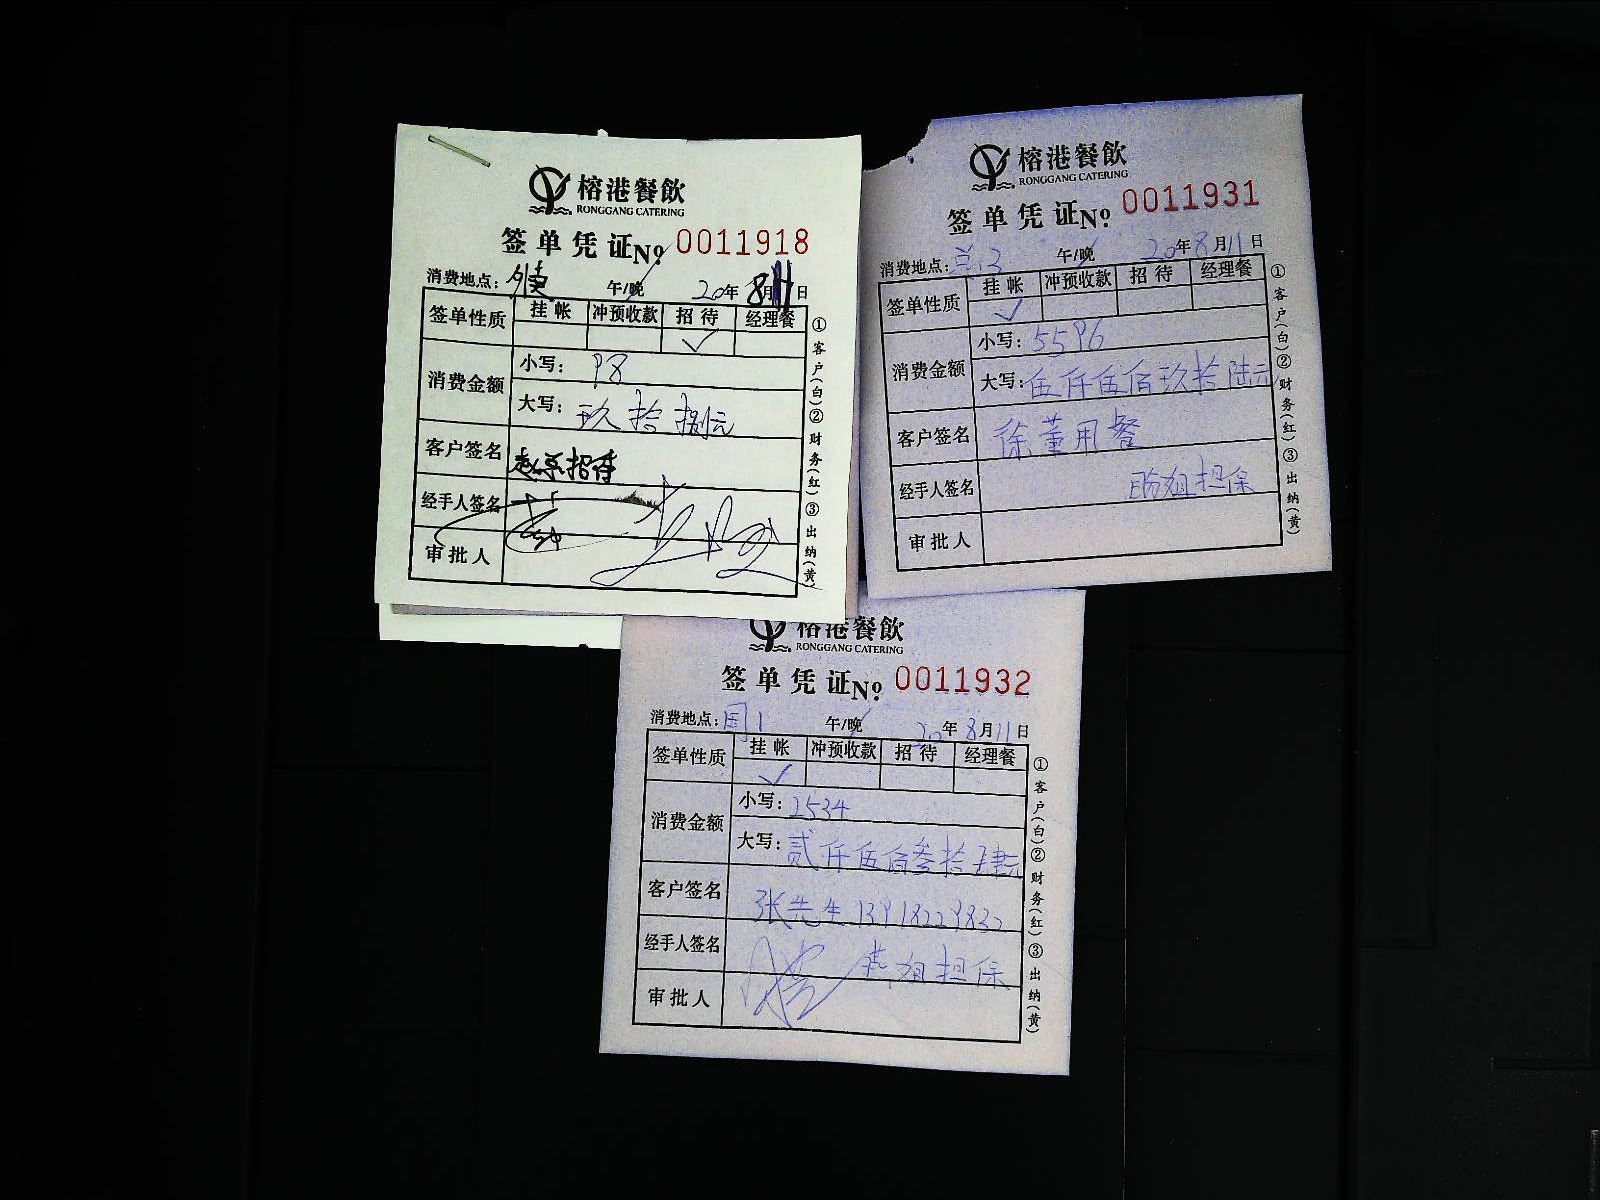 榕港餐飲
RONGGANG CATERING
签单凭证№ 0011918
消费地点: 午/晚 20年8月11日
签单性质 挂帐 冲预收款 招待 经理餐
✓
消费金额 小写: 98
大写: 玖拾捌元
客户签名 赵总招待
经手人签名
审批人
①客户(白)②财务(红)③出纳(黄)
榕港餐飲
RONGGANG CATERING
签单凭证№ 0011931
消费地点: 午/晚 20年8月11日
签单性质 挂帐 冲预收款 招待 经理餐
✓
消费金额 小写: 5596
大写: 伍仟伍佰玖拾陆元
客户签名 徐董用餐
经手人签名 姐担保
审批人
①客户(白)②财务(红)③出纳(黄)
榕港餐飲
RONGGANG CATERING
签单凭证№ 0011932
消费地点: 1 午/晚 20年8月11日
签单性质 挂帐 冲预收款 招待 经理餐
✓
消费金额 小写: 2534
大写: 贰仟伍佰叁拾肆元
客户签名 张先生
经手人签名 姐担保
审批人
①客户(白)②财务(红)③出纳(黄)